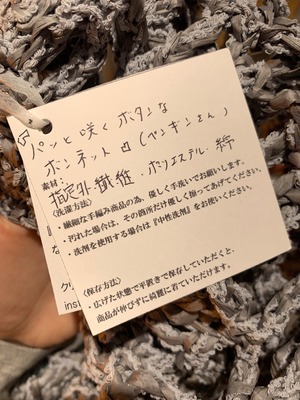 『パンと咲くボタンな
ボンネット』(ペンギンさん)
素材:
指定外繊維・ポリエステル・綿
〈洗濯方法〉
・繊細な手編み商品の為、優しく手洗いでお願いします。
・汚れた場合は、その箇所だけ優しく擦ってあげてください。
・洗剤を使用する場合は『中性洗剤』をお使いください。
〈保存方法〉
・広げた状態で平置きで保存していただくと、
商品が伸びずに綺麗に着ていただけます。
ins